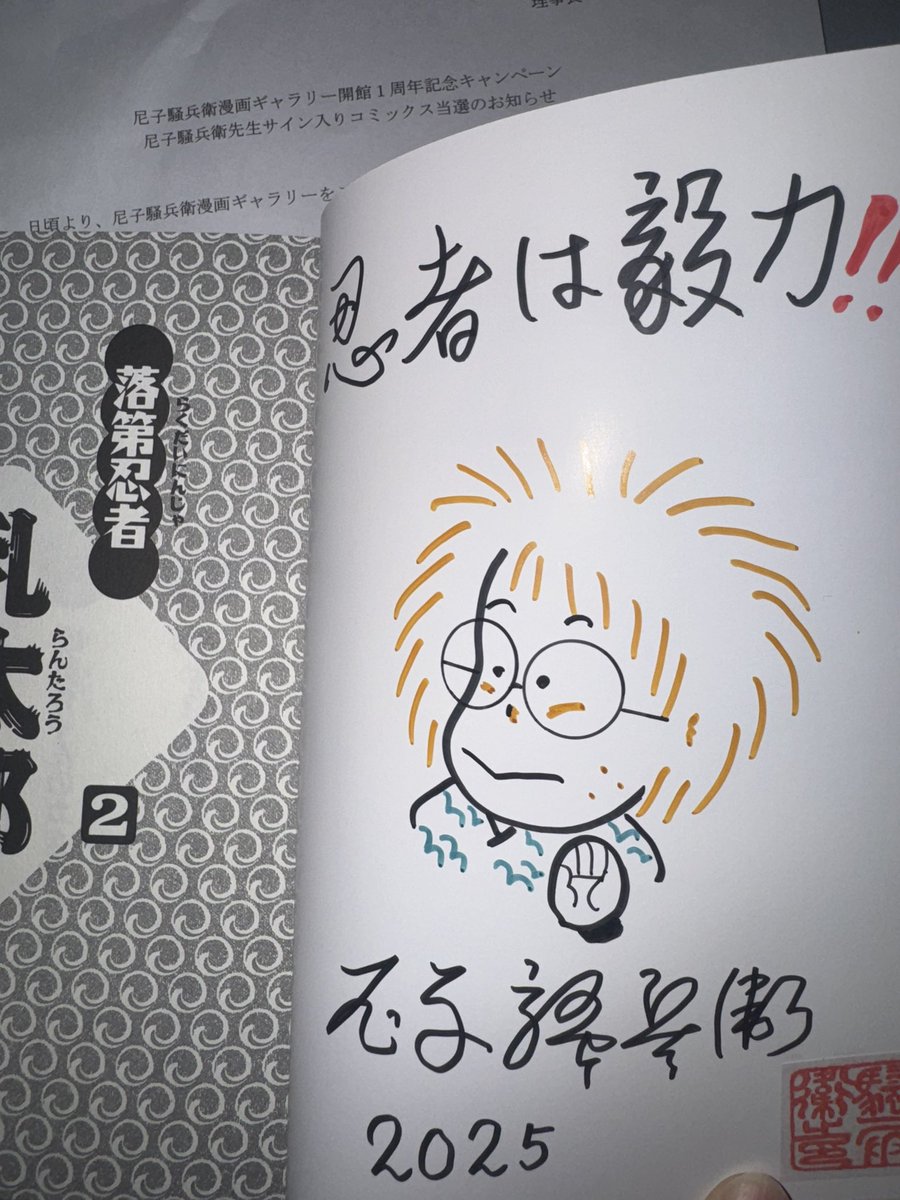 理事長
尼子騒兵衛漫画ギャラリー開館1周年記念キャンペーン
尼子騒兵衛先生サイン入りコミックス当選のお知らせ
日頃より、尼子騒兵衛漫画ギャラリーを
忍者は毅力!!
落第忍者
らくだいにんじゃ
乱太郎
らんたろう
2
尼子騒兵衛
2025